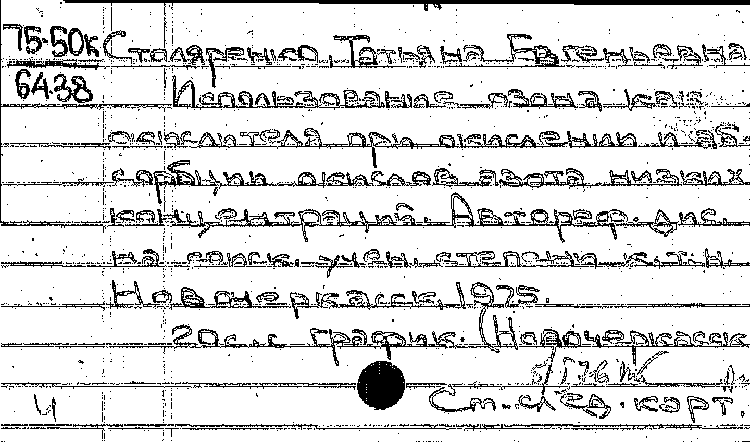 75-50к Столяренко, Татьяна Евгеньевна
6438 Использование озона как
окислителя при окислении и аб-
сорбции окислов азота низких
концентраций. Автореф. дис.
на соиск. учен. степени к.т.н.
Новочеркасск, 1975.
20с. с график. (Новочеркасск
4 Ст. след. карт.